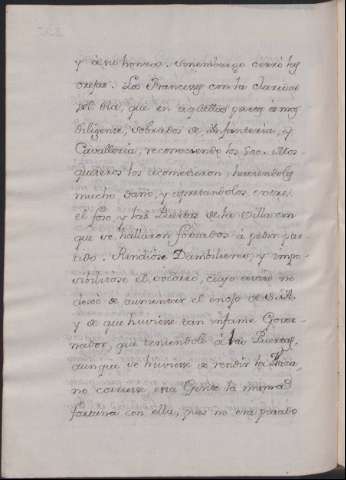 y á ser honras. Sinembargo cerró las
orejas. Los Franceses con la claridad
del dia, que en aquellas partes á mas
diligente, sobrados de Infanteria, y
Cavalleria, reconociendo los 500. Mos-
queteros los acometieron, haciendoles
mucho daño, y apretandolos, entre
el foso, y las Puertas de la Villa con
que se hallaron forzados á pedir par-
tido. Rindiose Dambilieres, y impo-
el socorro, cuyo aviso no
dexó de aumentar el enojo de S.A.
y de que huviese tan infame Gover-
nador, que teniendole á las Puertas,
aunque se huviese de rendir la Plaza,
no corriese esta Gente la misma
fortuna con ella, pues no era parado